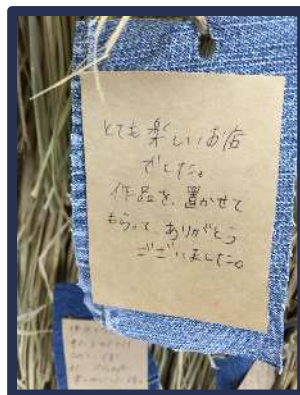 とても楽しいお店
でした。
作品を、置かせて
もらって、ありがとう
ございました。